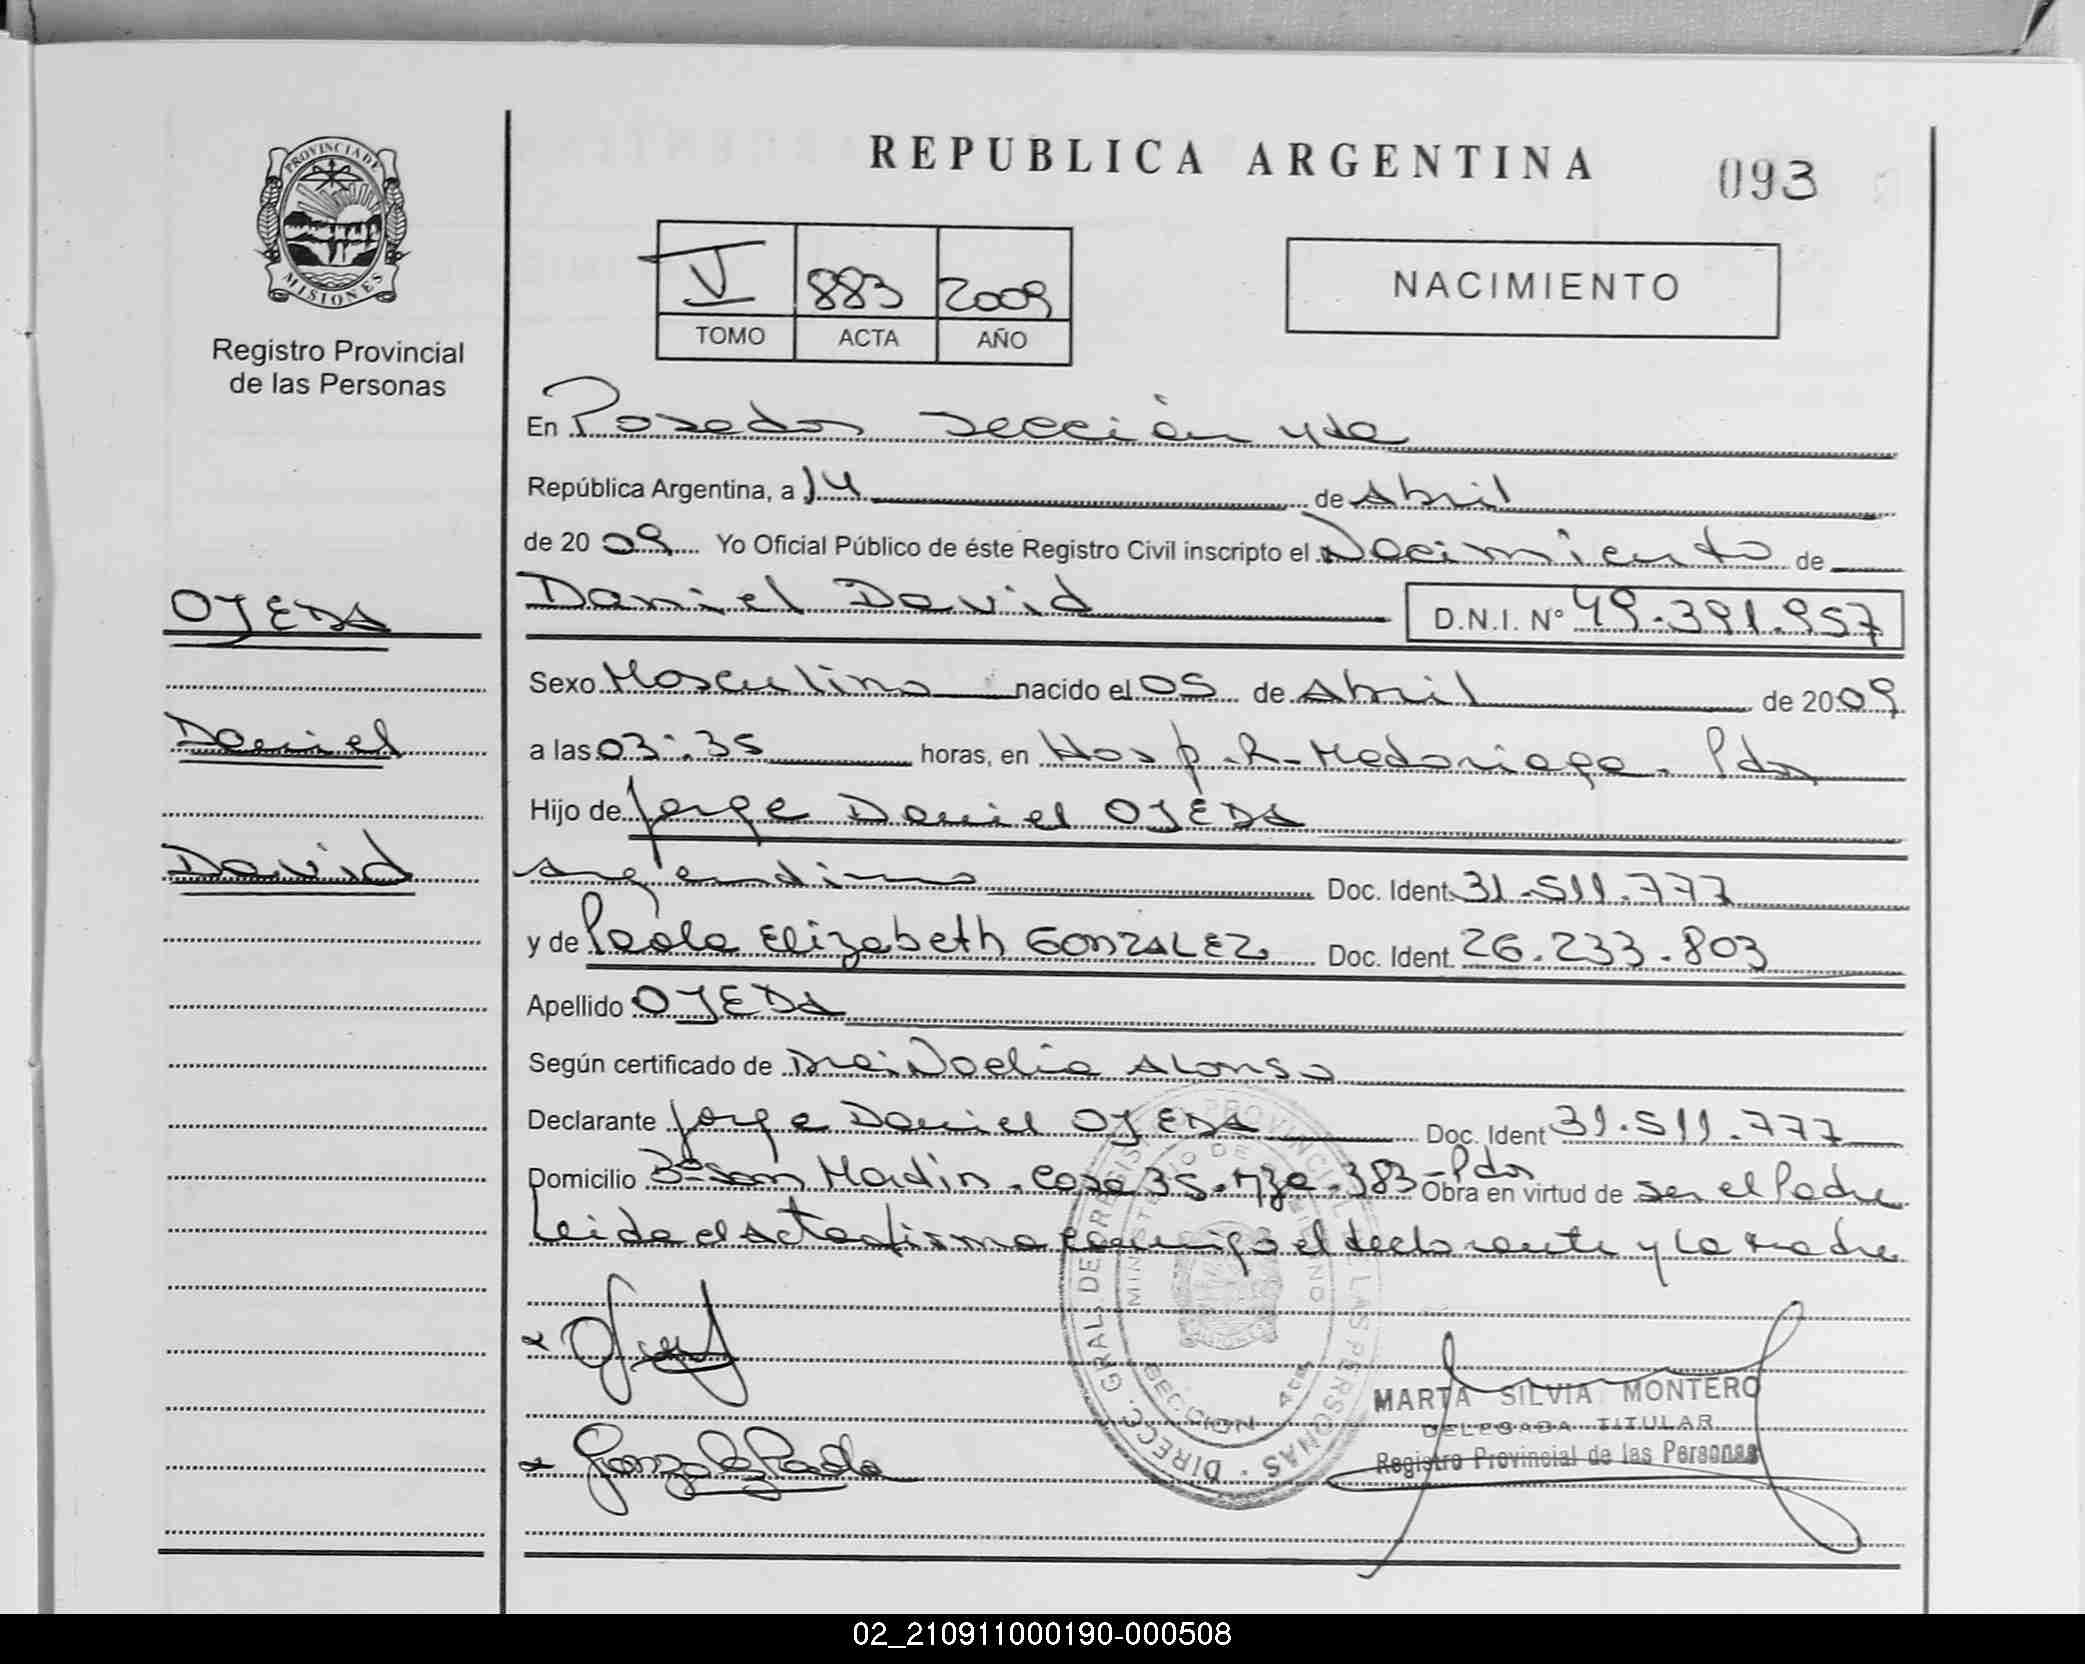 REPUBLICA ARGENTINA
093
PROVINCIA DE
MISIONES
Registro Provincial
de las Personas
V 883 2009
TOMO ACTA AÑO
NACIMIENTO
En Posadas sección 4ta
República Argentina, a 14 de Abril
de 2009 Yo Oficial Público de éste Registro Civil inscripto el Nacimiento de
OJEDA
Daniel David D.N.I. Nº 49.391.957
Sexo Masculino nacido el 05 de Abril de 2009
Daniel
a las 03:35 horas, en Hosp. R. Madariaga. Pdas
Hijo de Jorge Daniel OJEDA
David
argentino Doc. Ident. 31.511.777
y de Paola Elizabeth GONZALEZ Doc. Ident. 26.233.803
Apellido OJEDA
Según certificado de Dra. Noelia Alonso
Declarante Jorge Daniel OJEDA Doc. Ident 31.511.777
Domicilio Bº San Martin. Casa 35. mza. 383-Pdas Obra en virtud de ser el Padre
Leida el acta firma conmigo el declarante y la madre
Gonzalez Paola
DIRECC. GRAL. DE REGIS PROVINCIAL DE LAS PERSONAS
SECCION 4ta
MARTA SILVIA MONTERO
DELEGADA TITULAR
Registro Provincial de las Personas
02_210911000190-000508